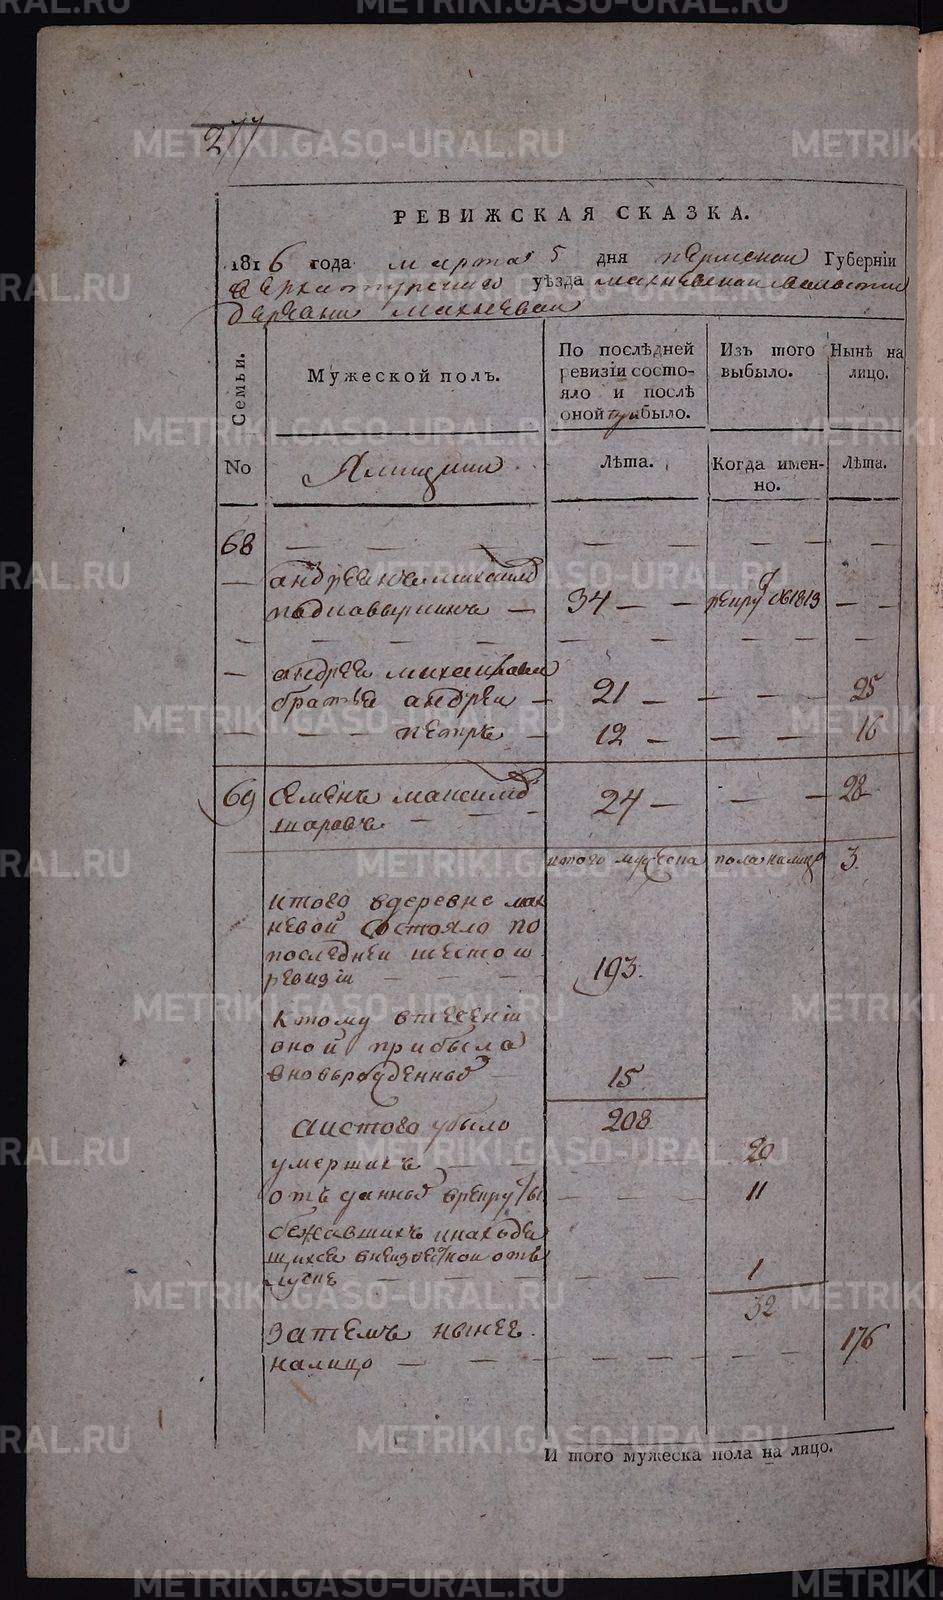 277
РЕВИЖСКАЯ СКАЗКА.
1816 года марта 5 дня пермской Губернїи
верхотурского уѣзда махневской волости
деревни махневой
Семьи.
Мужеской полъ.
По послѣдней ревизїи состояло и послѣ оной прибыло.
Изъ того выбыло.
Нынѣ на лицо.
No
Ямщики
Лѣта.
Когда именно.
Лѣта.
68 — — — — — — —
— андреянъ михаилов
подкавыркинъ — 34 — — рекрут в 1813 — —
— — — — — — — — —
— андрея михаилова
братья андреи — 21 — — — — 25
— — — петръ — 12 — — — 16
69 семенъ максимов 24 — — — 28
шаровъ — — —
итого мужеска пола налицо 3.
итого вдеревне мах
невой состояло по
последней шестой
ревизїи — — — 193.
ктому втечении
оной прибыла
вновьрожденных — 15
208
аистого убыло
умерших — — — 20
отъданных врекруты — — — 11
бежавшихъ инаходя
щихся внеизвестной отъ
лучке — — — — — 1
32
затемъ нынее. 176
налицо — — — — — — — —
И того мужеска пола на лицо.
METRIKI.GASO-URAL.RU